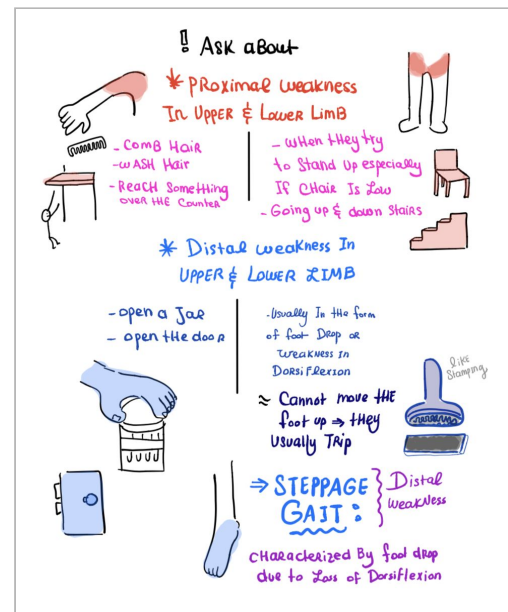 ! Ask about
* Proximal weakness
In Upper & Lower Limb
- Comb Hair
- wash Hair
- Reach something
over the counter
- when they try
to Stand up especially
If chair Is Low
- Going up & down stairs
* Distal weakness In
Upper & Lower Limb
- open a Jar
- open the door
- Usually In the form
of foot Drop or
weakness in
Dorsiflexion
≈ Cannot move the
foot up ⇒ they
Usually Trip
like
stamping
⇒ STEPPAGE
GAIT :
Distal
weakness
characterized By foot drop
due to Loss of Dorsiflexion